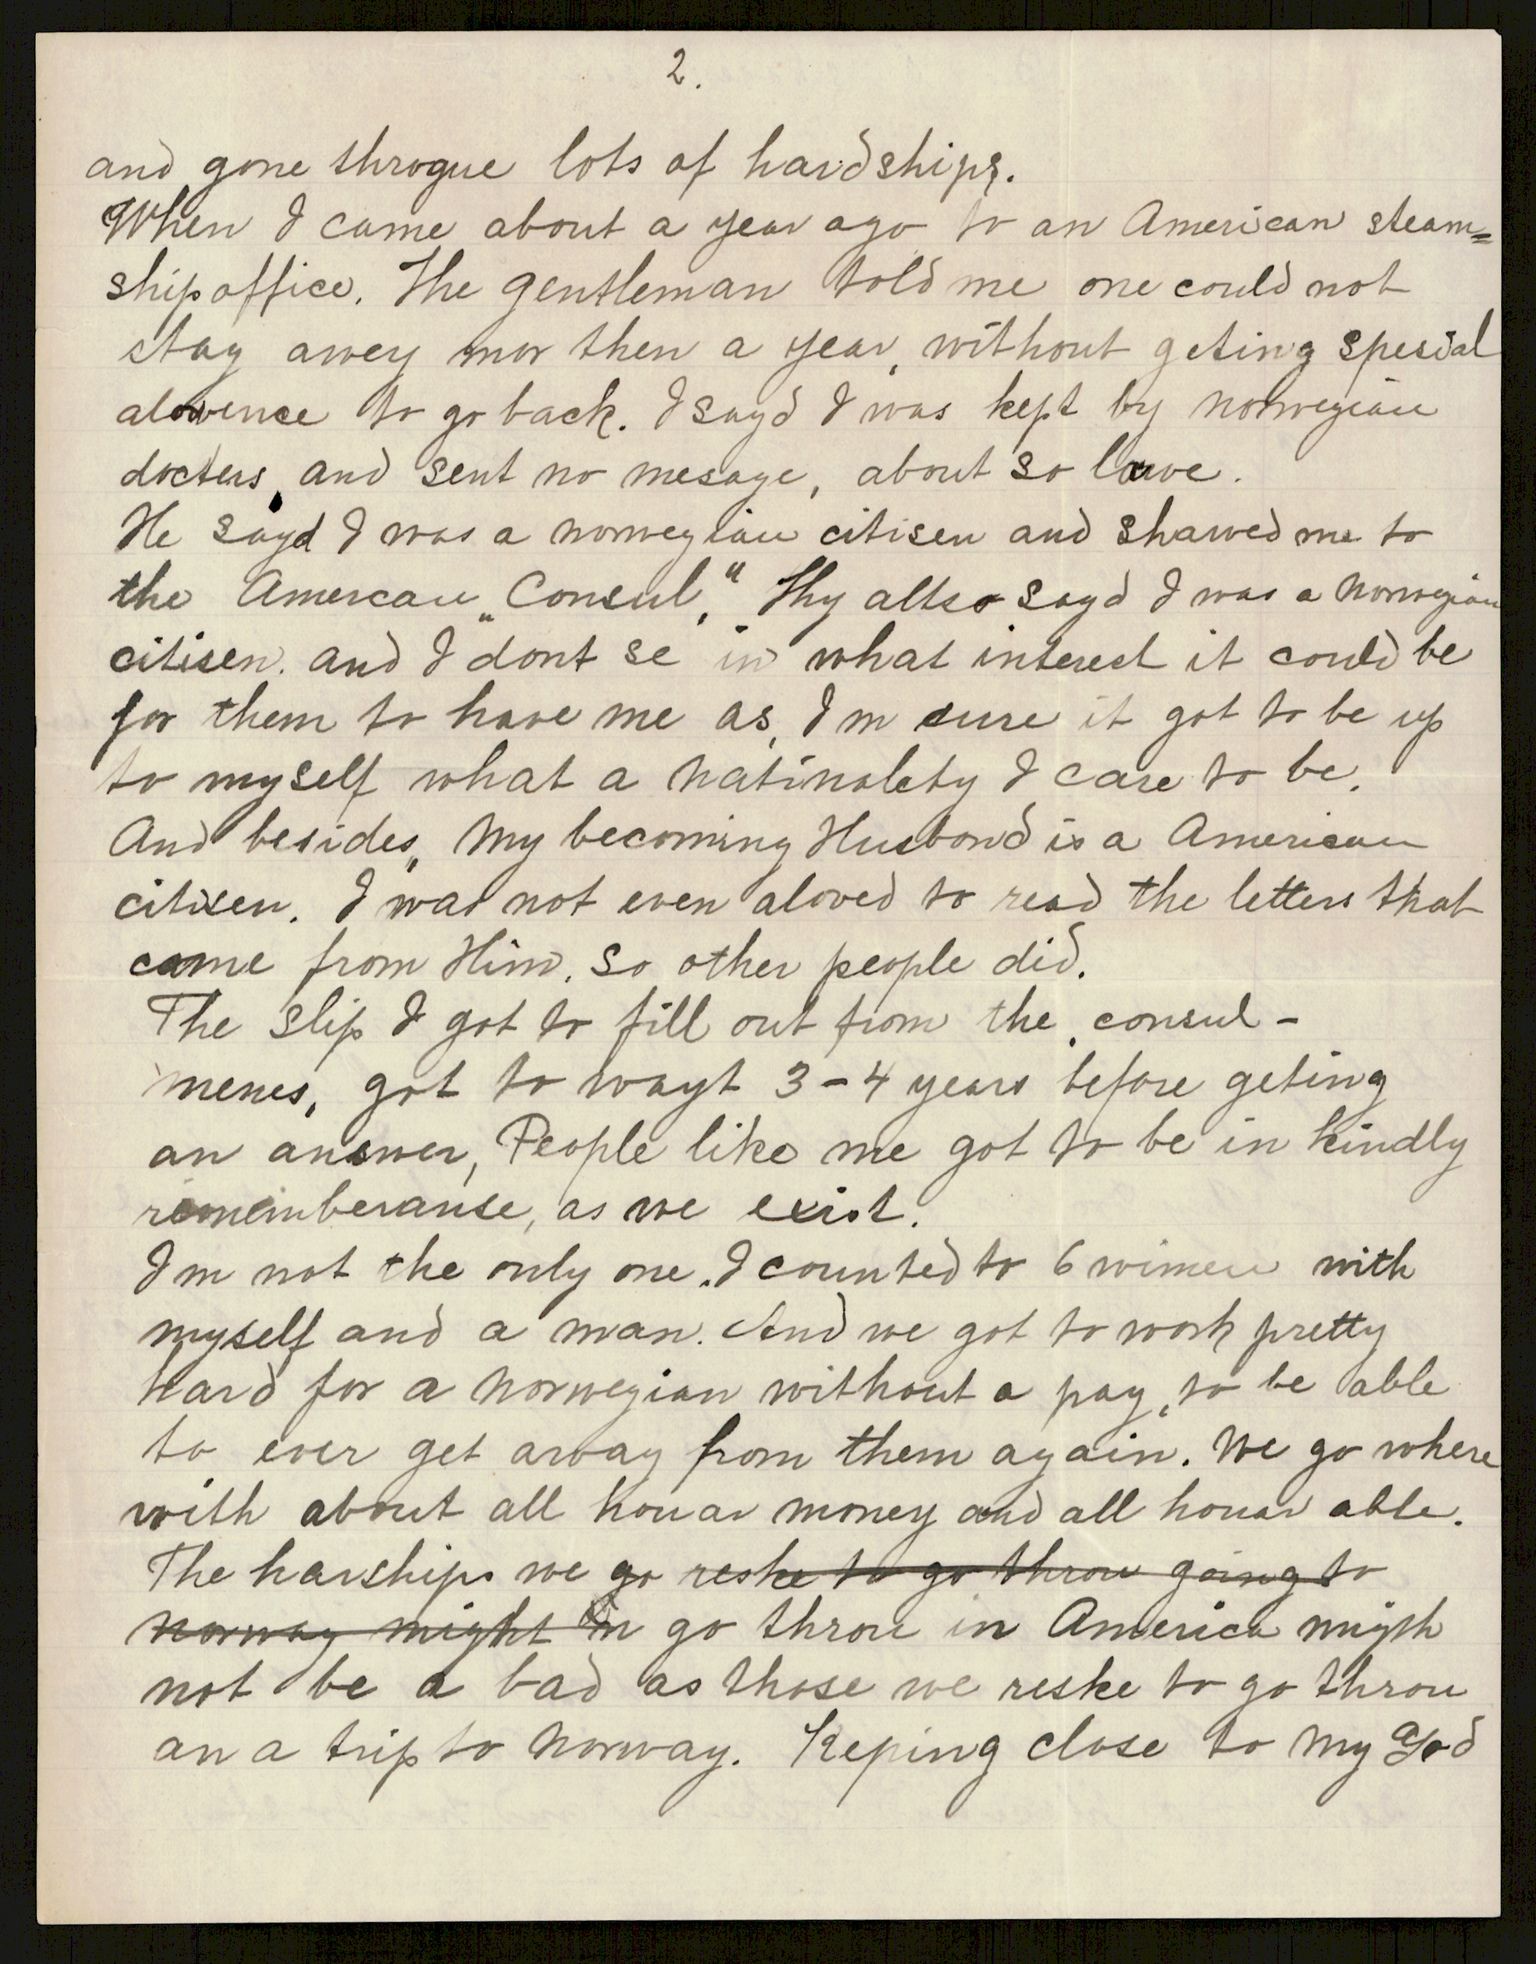 2.
and gone throgue lots of hardships.
When I came about a year ago to an American steam=
ship office. The gentleman told me one could not
stay awey mor then a year, without geting spesial
alowence to go back. I sayd I was kept by norwegian
docters, and sent no mesage, about so lowe.
He sayd I was a norwegian citisen and shawed me to
the Amercan „Consul," Thy allso sayd I was a norwegian
citisen. and I dont se in what interest it could be
for them to have me as, I m sure it got to be up
to myself what a natinolety I care to be.
And besides, my becoming Husbond is a American
citisen. I was not even aloved to read the letters that
came from Him. So other people did.
The slip I got to fill out from the consul-
menes, got to wayt 3-4 years before geting
an answer, People like me got to be in kindly
rememberanse, as we exist.
I m not the only one. I counted to 6 wimen with
myself and a man. And we got to work pretty
hard for a norwegian without a pay, to be able
to ever get away from them again. We go where
with about all houar money and all houar able.
The harships we go reske to go throu going to
norway might in go throu in America migth
not be a bad as those we reske to go throu
an a trip to norway. Keping close to my God